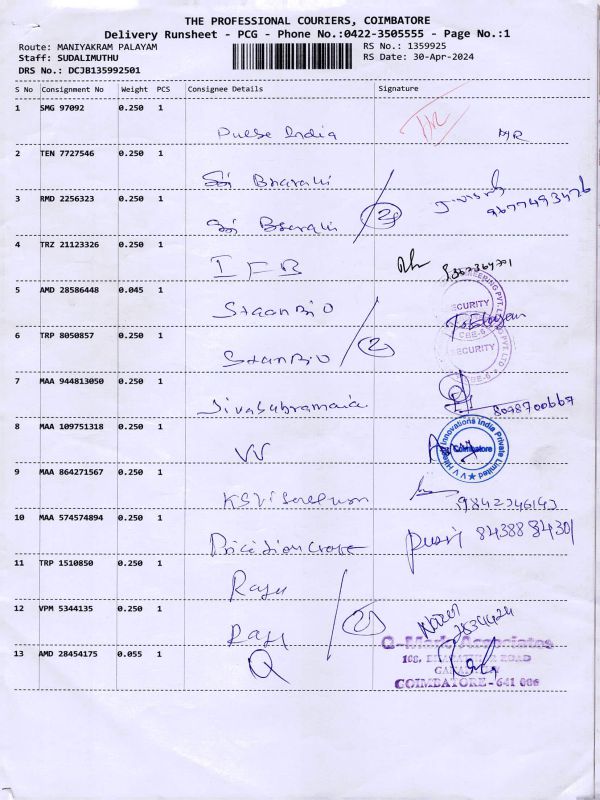 THE PROFESSIONAL COURIERS, COIMBATORE
Delivery Runsheet - PCG - Phone No.:0422-3505555 - Page No.:1
Route: MANIYAKRAM PALAYAM RS No.: 1359925
Staff: SUDALIMUTHU RS Date: 30-Apr-2024
DRS No.: DCJB135992501
S No Consignment No Weight PCS Consignee Details Signature
1 SMG 97092 0.250 1
Pulse India
2 TEN 7727546 0.250 1
Sri Bharani
3 RMD 2256323 0.250 1
Sri Bharani 2 9677493426
4 TRZ 21123326 0.250 1
IFB
5 AMD 28586448 0.045 1
StaanBio SECURITY
6 TRP 8050857 0.250 1
StaanBio 2 SECURITY
7 MAA 944813050 0.250 1
Sivasubramania 8098700667
8 MAA 109751318 0.250 1
VV Innovations India Private Limited Coimbatore
9 MAA 864271567 0.250 1
9842346143
10 MAA 574574894 0.250 1
8438884301
11 TRP 1510850 0.250 1
Raju
12 VPM 5344135 0.250 1
Raju 2
13 AMD 28454175 0.055 1
Q Associates
ROAD
COIMBATORE - 641 006